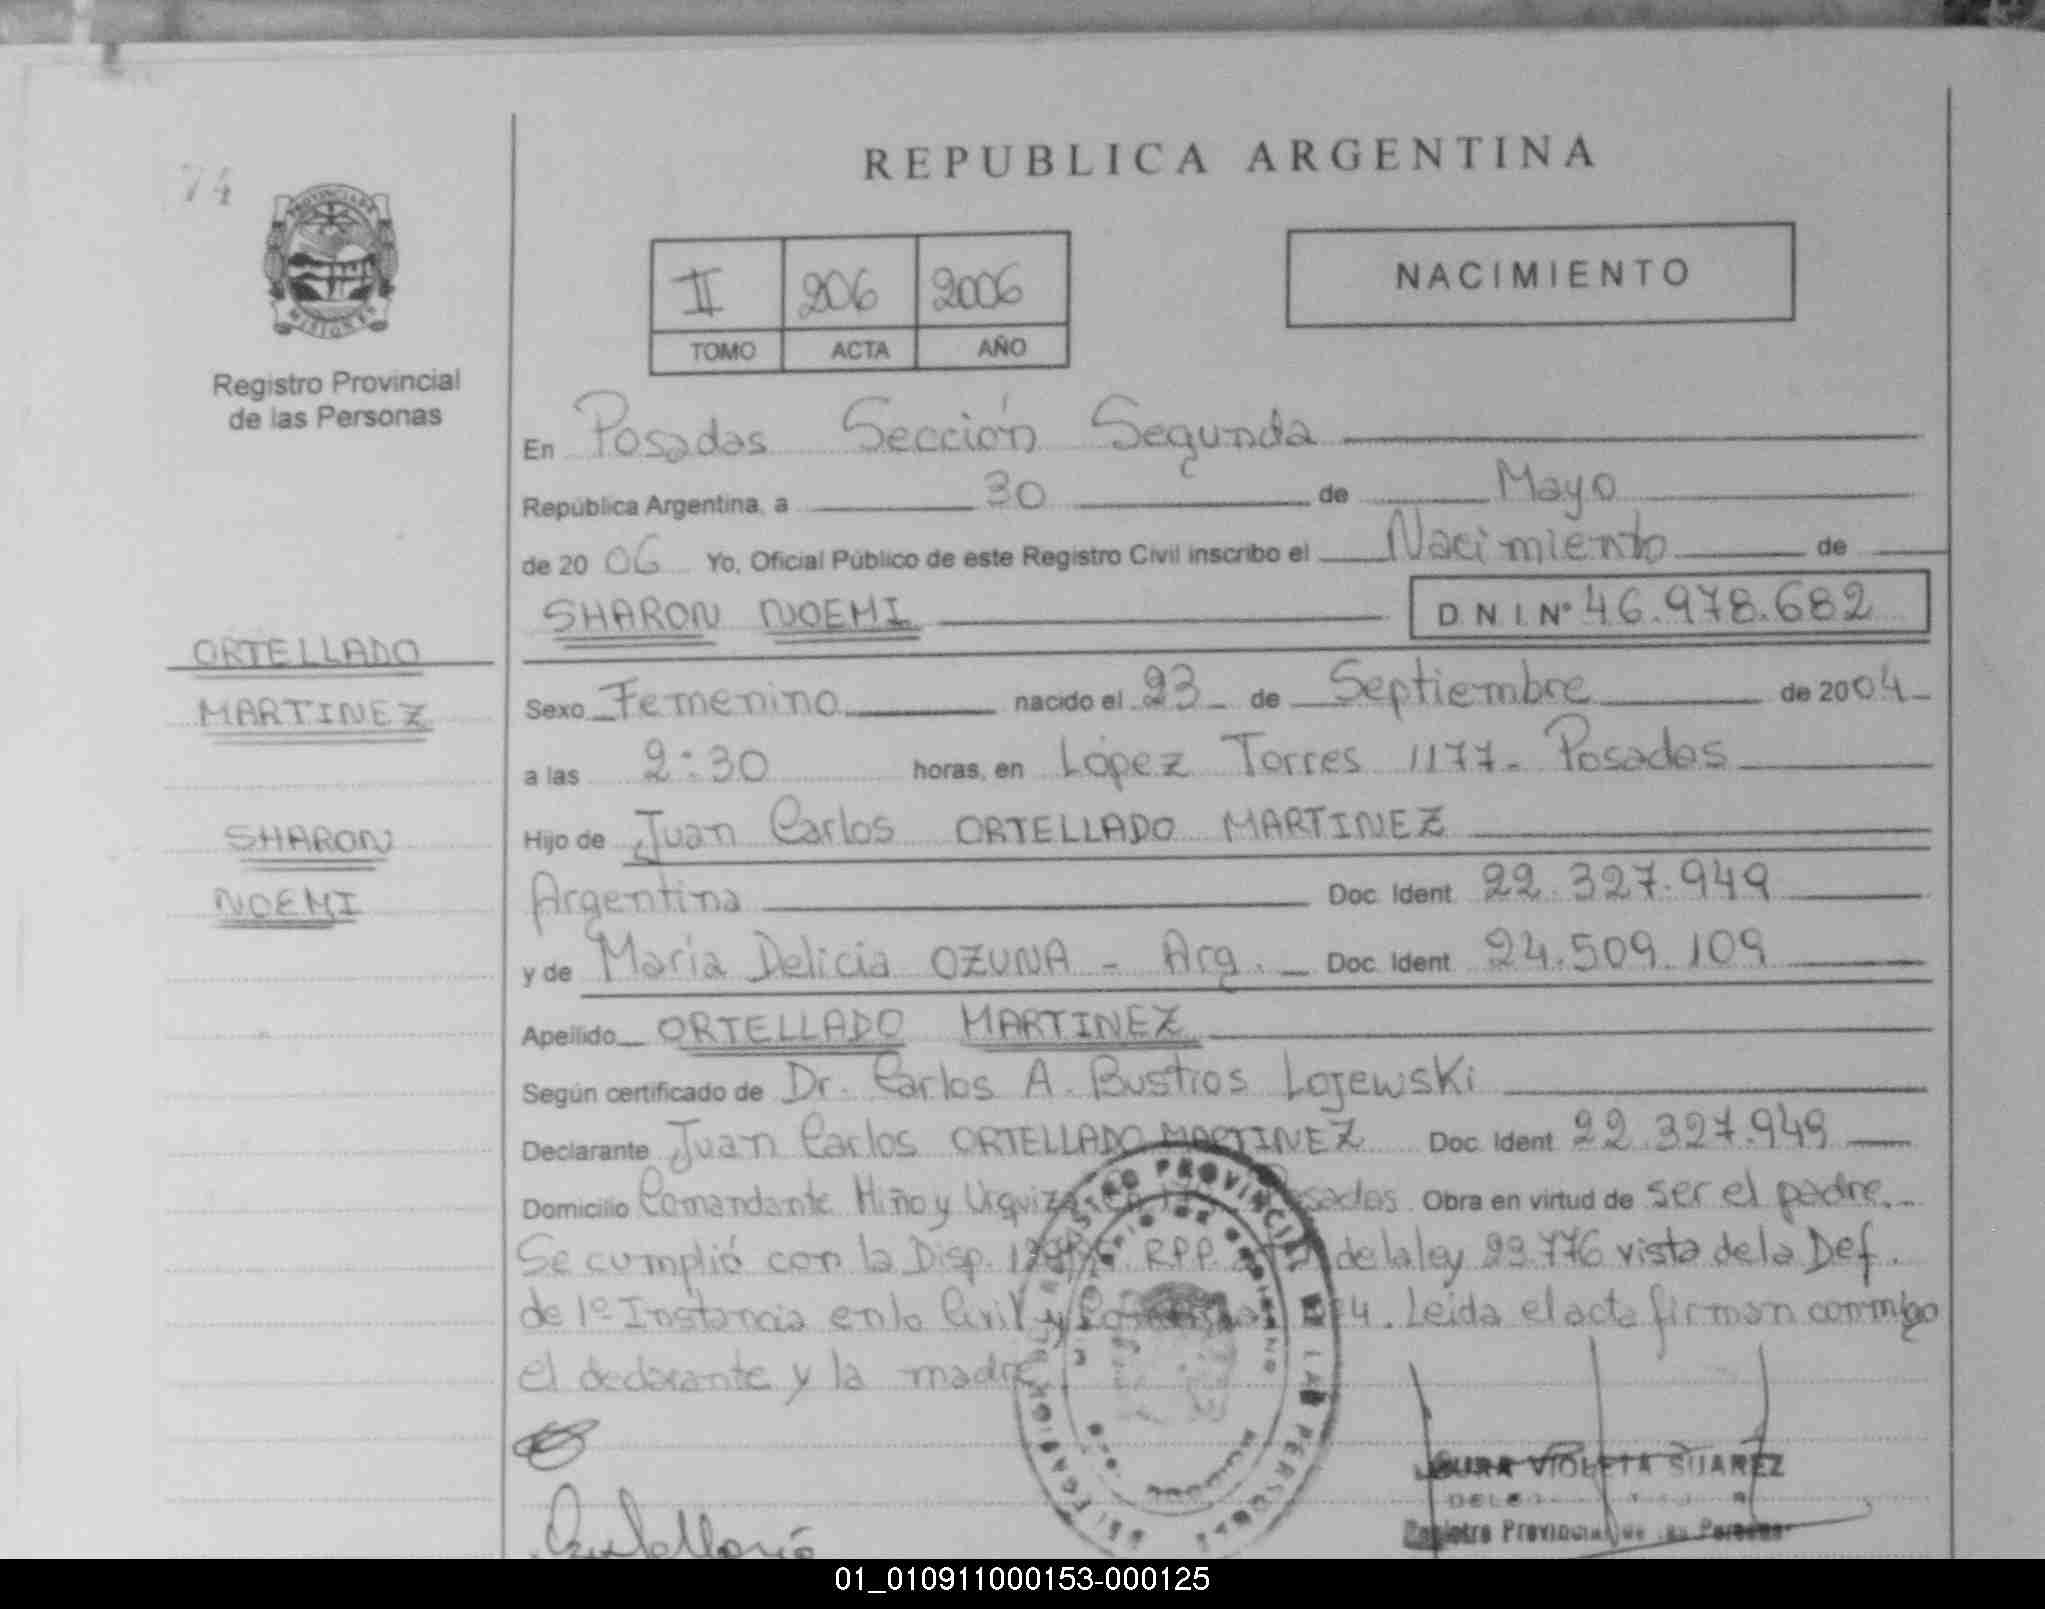 74
PROVINCIA DE
MISIONES
Registro Provincial
de las Personas
REPUBLICA ARGENTINA
II 206 2006
TOMO ACTA AÑO
NACIMIENTO
En Posadas Sección Segunda
República Argentina, a 30 de Mayo
de 2006 Yo, Oficial Público de este Registro Civil inscribo el Nacimiento de
SHARON NOEMI D.N.I. Nº 46.978.682
ORTELLADO
MARTINEZ
SHARON
NOEMI
Sexo Femenino nacido el 23 de Septiembre de 2004
a las 2:30 horas, en López Torres 1177 - Posadas
Hijo de Juan Carlos ORTELLADO MARTINEZ
Argentina Doc. Ident. 22.327.949
y de María Delicia OZUNA - Arg. Doc. Ident. 24.509.109
Apellido ORTELLADO MARTINEZ
Según certificado de Dr. Carlos A. Bustios Lojewski
Declarante Juan Carlos ORTELLADO MARTINEZ Doc. Ident. 22.327.949
Domicilio Comandante Miño y Urquiza Obra en virtud de ser el padre.
Se cumplió con la Disp. RPP. de la ley 23.776 vista de la Def.
de 1º Instancia en lo Civil y Nº 4. Leida el acta firman conmigo
el declarante y la madre
REGISTRO PROVINCIAL DE LAS PERSONAS
LAURA VIOLETA SUAREZ
Registro Provincial de las Personas
01_010911000153-000125